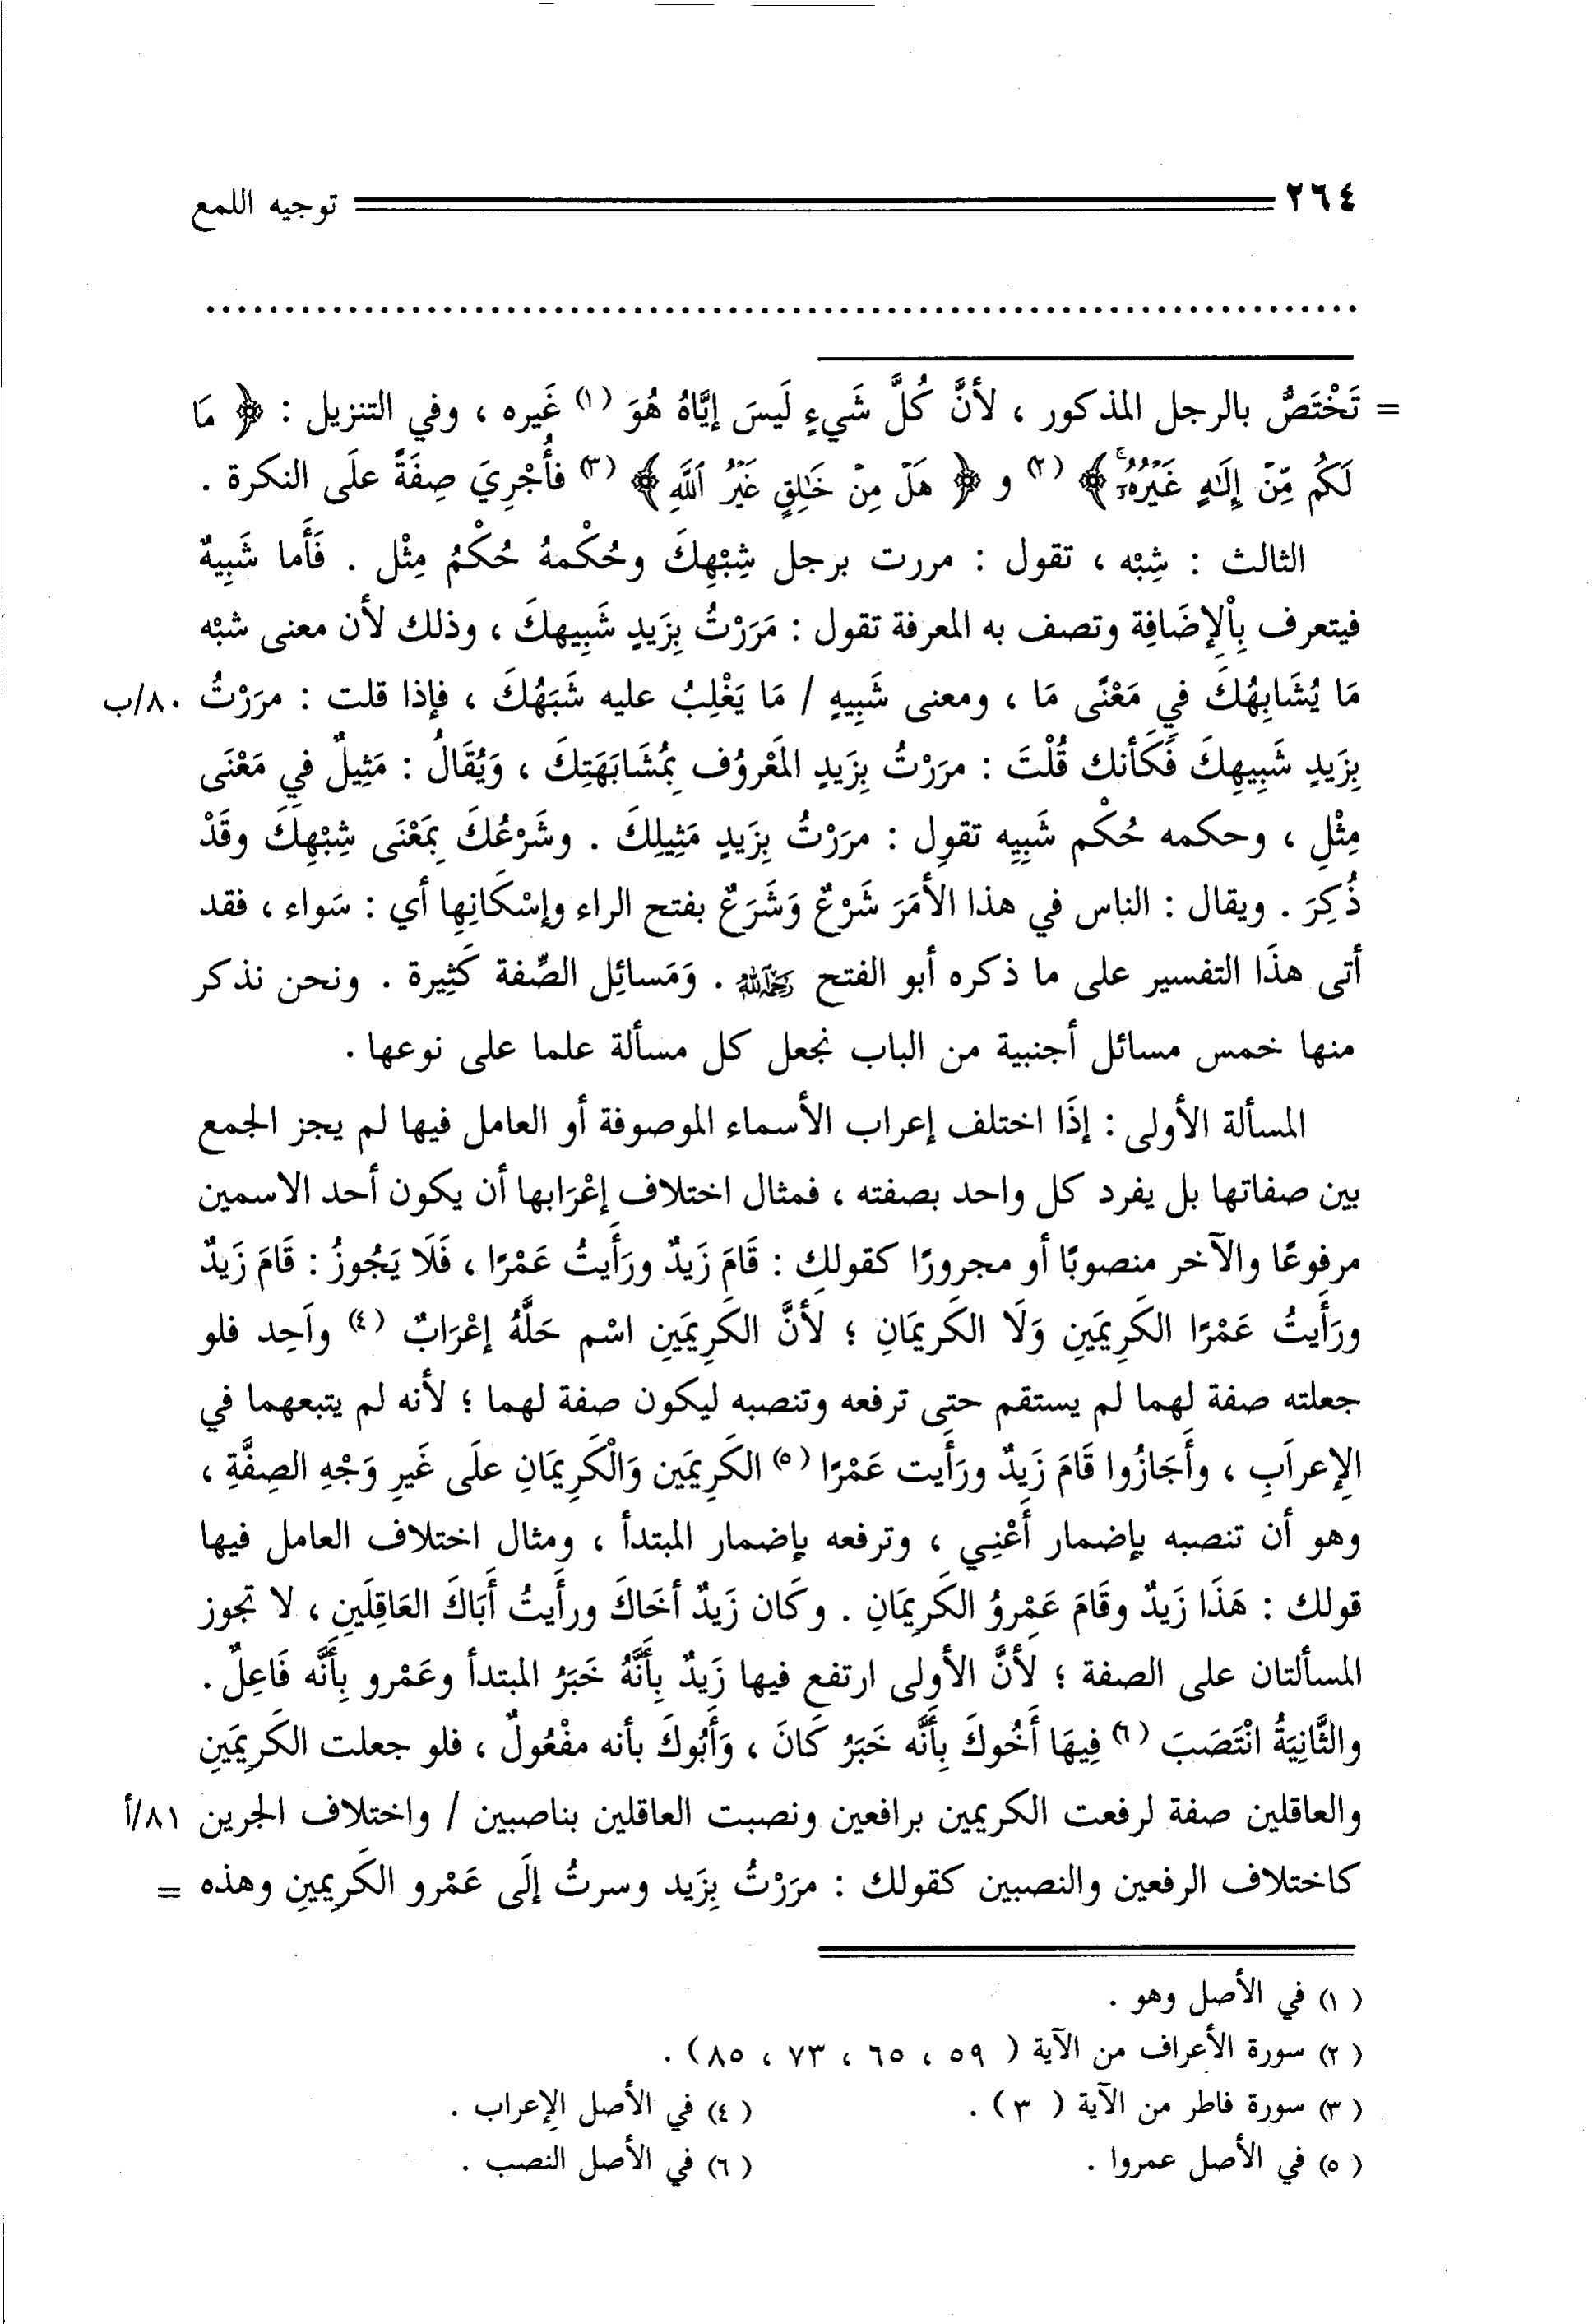 ٢٦٤ توجيه اللمع
................................................................
= تَخْتَصُّ بالرجل المذكور ، لأنَّ كُلَّ شَيءٍ لَيسَ إيَّاهُ هُوَ (١) غَيره ، وفي التنزيل : ﴿ مَا
لَكُم مِّنْ إِلَٰهٍ غَيْرُهُۥٓ ﴾ (٢) و ﴿ هَلْ مِنْ خَٰلِقٍ غَيْرُ ٱللَّهِ ﴾ (٣) فأُجْرِيَ صِفَةً علَى النكرة .
الثالث : شِبْه ، تقول : مررت برجل شِبْهِكَ وحُكْمهُ حُكْمُ مِثْل . فَأَما شَبِيهٌ
فيتعرف بِاْلإضَافِة وتصف به المعرفة تقول : مَرَرْتُ بِزَيدٍ شَبِيهكَ ، وذلك لأن معنى شبْه
مَا يُشَابِهُكَ في مَعْنًى مَا ، ومعنى شَبِيهٍ / مَا يَغْلِبُ عليه شَبَهُكَ ، فإذا قلت : مرَرْتُ ٨٠/ب
بِزَيدٍ شَبِيهِكَ فَكَأنك قُلْتَ : مرَرْتُ بِزَيدٍ المَعْروُف بِمُشَابَهَتِكَ ، وَيُقَالُ : مَثِيلٌ فيِ مَعْنَى
مِثْلِ ، وحكمه حُكْم شَبِيِه تقوِل : مرَرْتُ بِزَيدٍ مَثِيلِكَ . وشَرْعُكَ بِمَعْنَى شِبْهِكَ وقَدْ
ذُكِرَ . ويقال : الناس في هذا الأمَرَ شَرْعٌ وَشَرَعٌ بفتح الراء وإسْكَانِهِا أي : سَواء ، فقد
أتى هذَا التفسير على ما ذكره أبو الفتح رَحِمَهُ اللَّهُ . وَمَسائِل الصِّفة كَثِيرة . ونحن نذكر
منها خمس مسائل أجنبية من الباب نجعل كل مسألة علما على نوعها .
المسألة الأولى : إذَا اختلف إعراب الأسماء الموصوفة أو العامل فيها لم يجز الجمع
بين صفاتها بل يفرد كل واحد بصفته ، فمثال اختلاف إعْرَابها أن يكون أحد الاسمين
مرفوعًا والآخر منصوبًا أو مجرورًا كقولك : قَامَ زَيدٌ ورَأَيتُ عَمْرًا ، فَلَا يَجُوزُ : قَامَ زَيدٌ
ورَأَيتُ عَمْرًا الكَرِيمَينِ وَلَا الكَريمَانِ ؛ لأنَّ الكَرِيمَينِ اسْم حَلَّهُ إعْرَابٌ (٤) واَحِد فلو
جعلته صفة لهما لم يستقم حتى ترفعه وتنصبه ليكون صفة لهما ؛ لأنه لم يتبعهما في
الإعراَبِ ، وأَجَازُوا قَامَ زَيدٌ ورَأَيت عَمْرًا (٥) الكَرِيمَين وَالْكَرِيمَانِ علَى غَيرِ وَجْهِ الصِفَّةِ ،
وهو أن تنصبه بإضمار أَعْنِي ، وترفعه بإضمار المبتدأ ، ومثال اختلاف العامل فيها
قولك : هَذَا زَيدٌ وقَامَ عَمْروُ الكَرِيمَانِ . وكَان زَيدٌ أخَاكَ ورأَيتُ أَبَاكَ العَاقِلَينِ ، لا تجوز
المسألتان على الصفة ؛ لأنَّ الأولى ارتفع فيها زَيدٌ بِأَنَّهُ خَبَرُ المبتدأ وعَمْرو بِأَنَّه فَاعِلٌ .
والثَّانِيَةُ انْتَصَبَ (٦) فِيهَا أَخُوكَ بِأَنَّه خَبَرُ كَانَ ، وَأَبُوكَ بأنه مفْعُولٌ ، فلو جعلت الكَرِيمَينِ
والعاقلين صفة لرفعت الكريمين برافعين ونصبت العاقلين بناصبين / واختلاف الجرين ٨١/أ
كاختلاف الرفعين والنصبين كقولك : مرَرْتُ بِزَيد وسرتُ إلَى عَمْرو الكَرِيمينِ وهذه =
(١) في الأصل وهو .
(٢) سورة الأعراف من الآية ( ٥٩ ، ٦٥ ، ٧٣ ، ٨٥ ) .
(٣) سورة فاطر من الآية ( ٣ ) . (٤) في الأصل الإعراب .
(٥) في الأصل عمروا . (٦) في الأصل النصب .